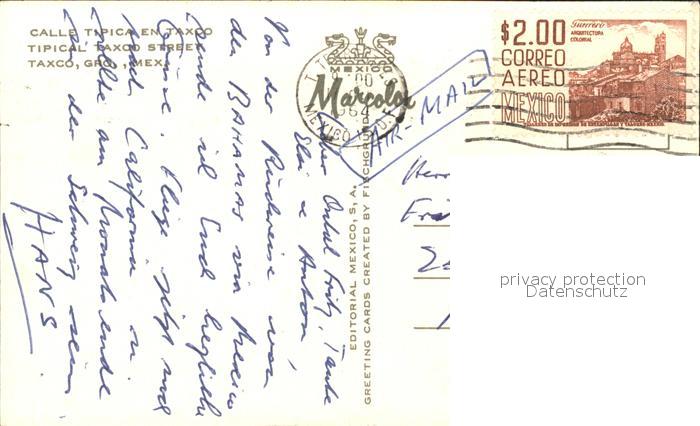 CALLE TIPICA EN TAXCO
TIPICAL TAXCO STREET
TAXCO, GRO., MEX.
MEXICO
Marcolor
AIR-MAIL
$2.00
Guerrero
ARQUITECTURA
COLONIAL
CORREO
AEREO
MEXICO
TALLERES DE IMPRESION DE ESTAMPILLAS Y VALORES-MEXICO
EDITORIAL MEXICO, S. A.
GREETING CARDS CREATED BY FISCHGRUND
Lieber Onkel Fritz, Tante
Elsi & Anton,
Von der Rückreise von
den BAHAMAS via Mexico
sende ich Euch herzliche
Grüsse. Fliege jetzt
nach California
sollte am Monatsende
in der Schweiz sein
HANS
Herr
privacy protection
Datenschutz